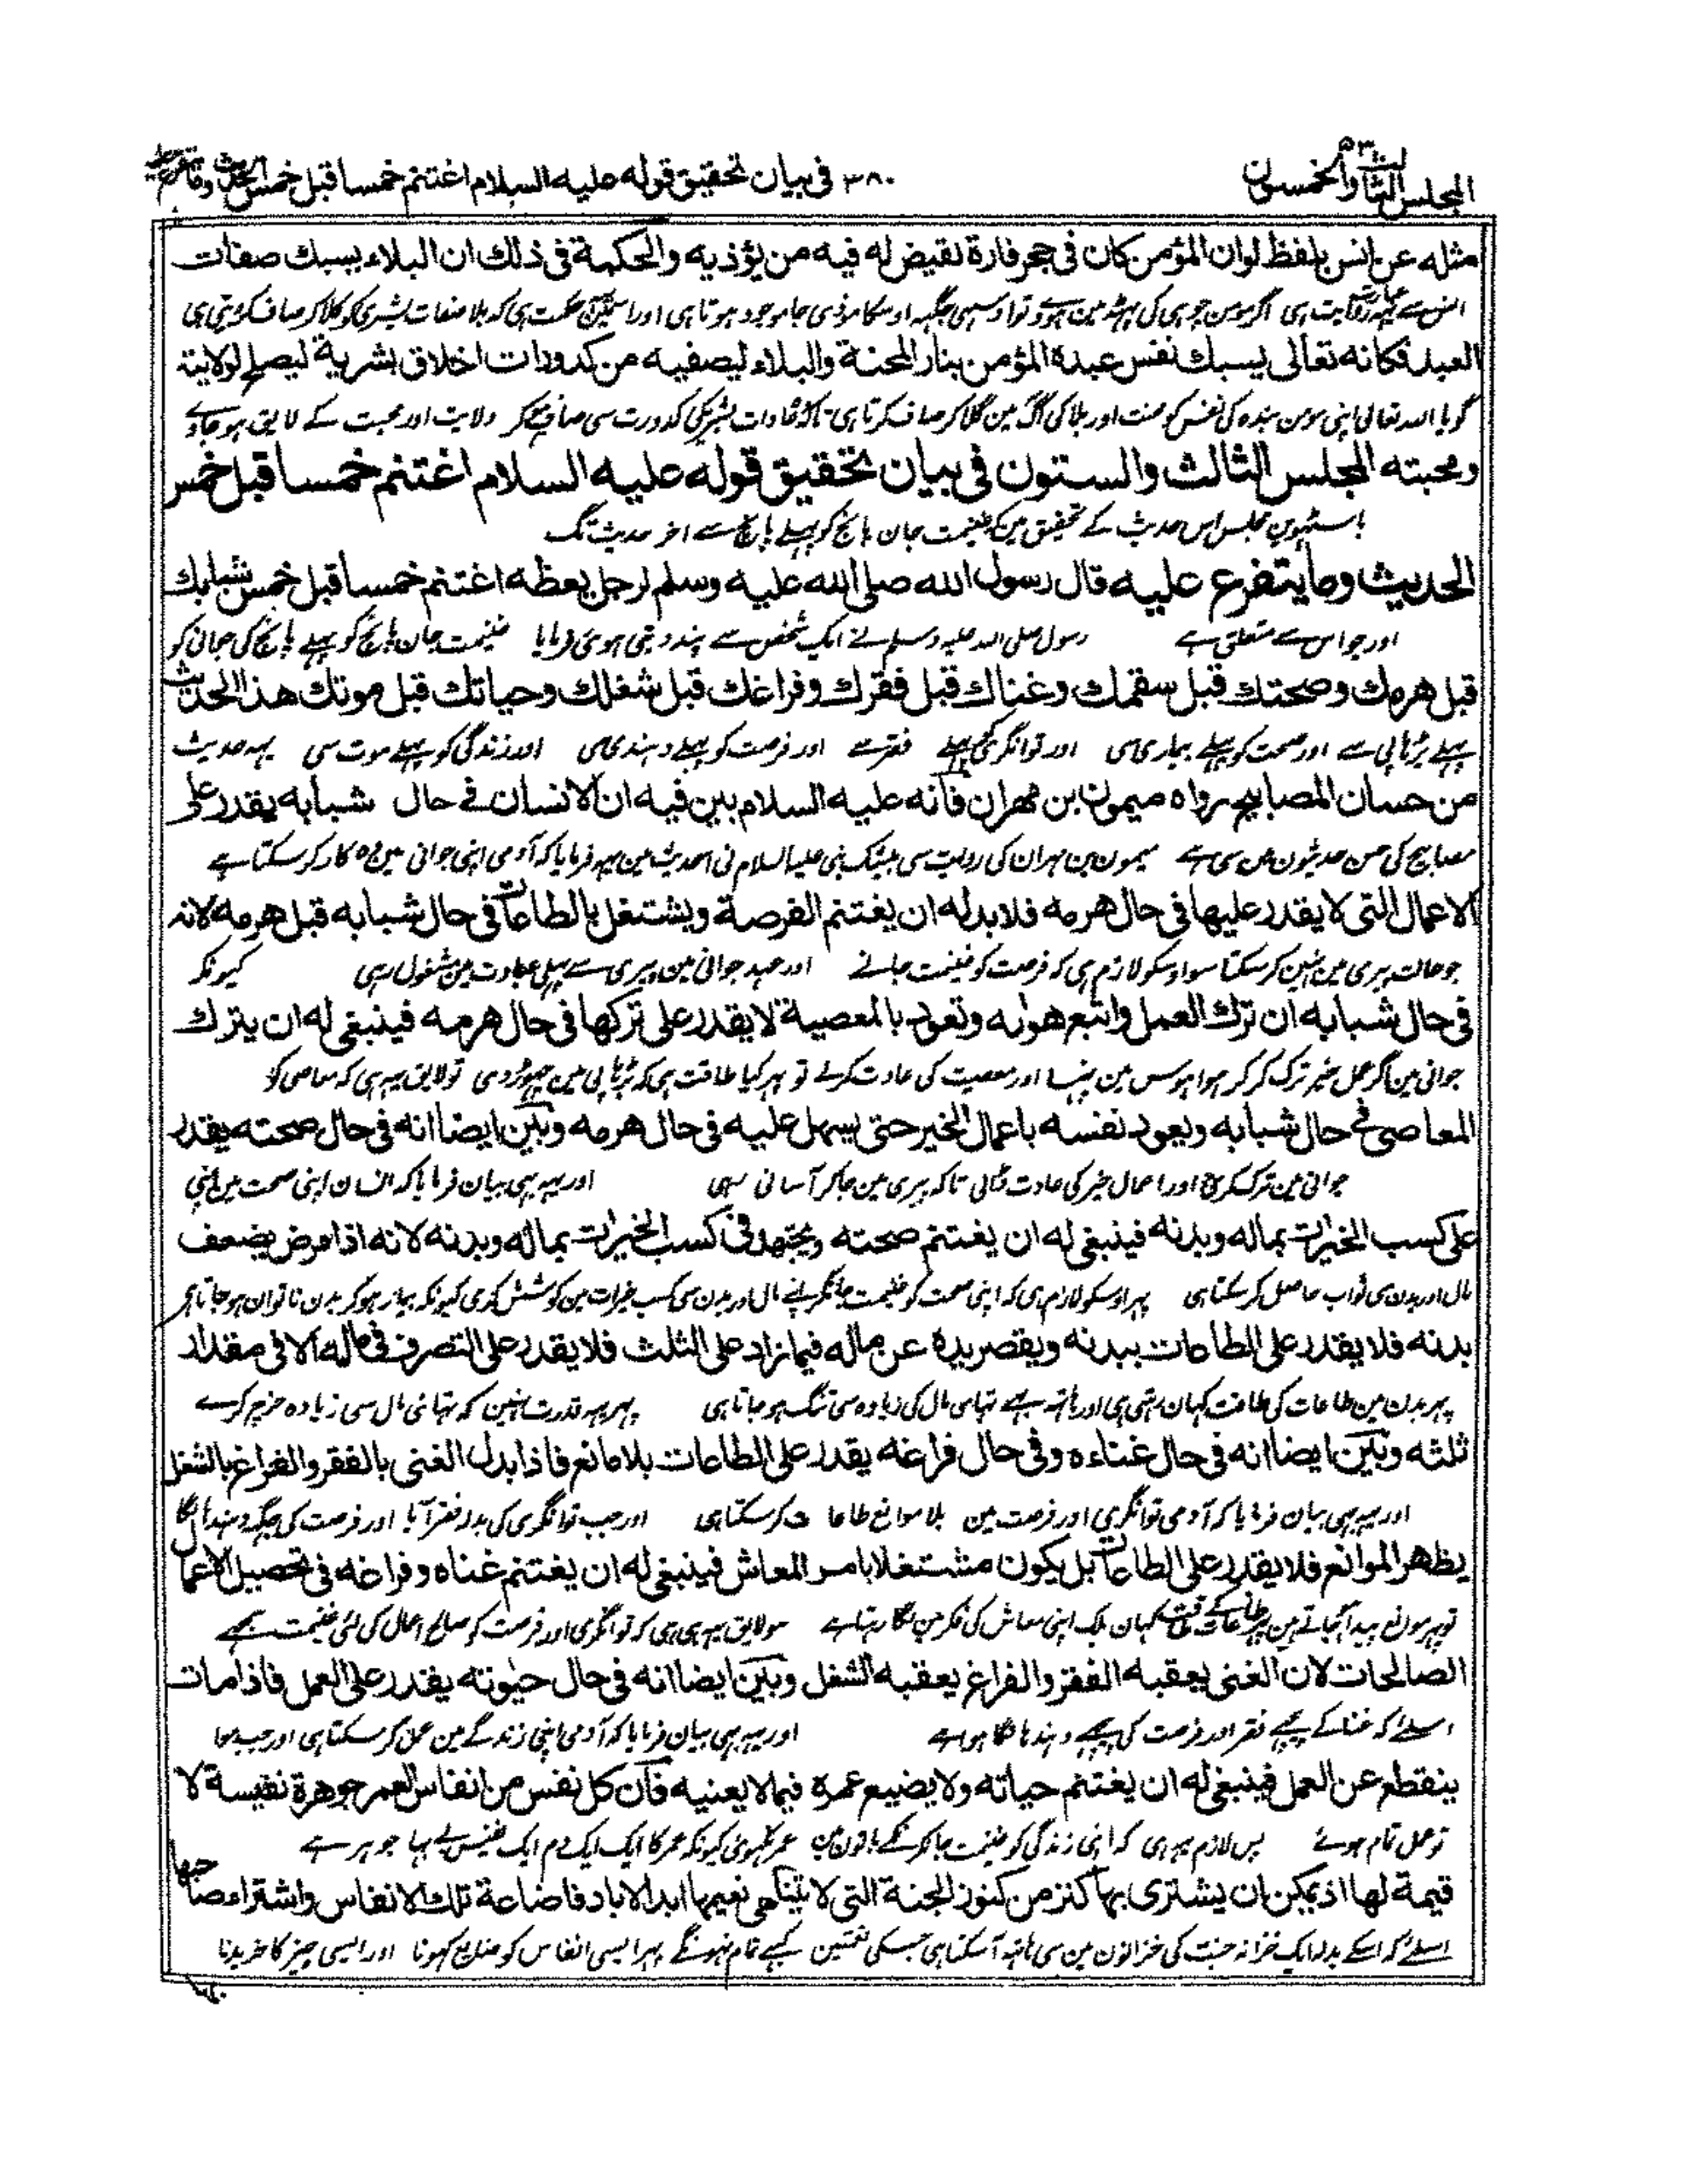 المجلس الثالث والخمسون ٥٣
٣٨٠ فى بيان تحقيق قوله عليه السلام اغتنم خمسا قبل خمس الحديث وما يتفرع عليه
مثله عن انس بلفظ لو ان المؤمن كان فى جحر فارة لقيض له فيه من يؤذيه والحكمة فى ذلك ان البلاء يسبك صفات
انس سے یہہ روایت ہی اگر مومن چوہی کی بہٹ مین ہووے تو اوسی جگہہ اوسکا موذی جا موجود ہوتا ہی اور اسمین حکمت ہی کہ بلا صفات بشری کو گلا کر صاف کر دیتی ہی
العبد فكانه تعالى يسبك نفس عبده المؤمن بنار المحنة والبلاء ليصفيه من كدورات اخلاق بشرية ليصلح لولايته
گویا اللہ تعالی اپنی مومن بندہ کی نفس کو محنت اور بلا کی آگ مین گلا کر صاف کرتا ہی تاکہ عادات بشری کی کدورت سی صاف ہو کر ولایت اور محبت کے لایق ہو جاوے
ومحبته المجلس الثالث والستون فى بيان تحقيق قوله عليه السلام اغتنم خمسا قبل خمس
باسٹہوین مجلس اس حدیث کے تحقیق مین کہ غنیمت جان پانچ کو پہلے پانچ سے اخر حدیث تک
الحديث وما يتفرع عليه قال رسول الله صلى الله عليه وسلم لرجل يعظه اغتنم خمسا قبل خمس شبابك
اور جو اس سے متعلق ہے رسول صلی اللہ علیہ وسلم نے ایک شخص سے پند دیتی ہوئی فرمایا غنیمت جان پانچ کو پہلے پانچ کی جوانی کو
قبل هرمك وصحتك قبل سقمك وغناك قبل فقرك وفراغك قبل شغلك وحياتك قبل موتك هذا الحديث
پہلے بڑہاپی سے اور صحت کو پہلے بیماری سی اور توانگری پہلے فقر سے اور فرصت کو پہلے دہندی سی اور زندگی کو پہلے موت سی یہہ حدیث
من حسان المصابيح رواه ميمون بن مهران فانه عليه السلام بين فيه ان الانسان فى حال شبابه يقدر على
مصابیح کی حسن حدیثون مین سی ہے میمون بن مہران کی روایت سی بیشک نبی علیہ السلام نی اس حدیث مین یہہ فرمایا کہ آدمی اپنی جوانی مین وہ کار کر سکتا ہے
الاعمال التى لا يقدر عليها فى حال هرمه فلا بد له ان يغتنم الفرصة ويشتغل بالطاعات فى حال شبابه قبل هرمه لانه
جو حالت پیری مین نہین کر سکتا سو اوسکو لازم ہی کہ فرصت کو غنیمت جانے اور عہد جوانی مین پیری سے پہلی عبادت مین مشغول رہی کیونکہ
فى حال شبابه ان ترك العمل واتبع هواه وتعود بالمعصية لا يقدر على تركها فى حال هرمه فينبغى له ان يترك
جوانی مین اگر عمل خیر ترک کر کر ہوا ہوس مین پہنسا اور معصیت کی عادت کرلے تو پہر کیا طاقت ہی کہ بڑہاپی مین چہوڑ دی تو لایق یہہ ہی کہ معاصی کو
المعاصى فى حال شبابه ويعود نفسه باعمال الخير حتى يسهل عليه فى حال هرمه وبين ايضا انه فى حال صحته يقدر
جوانی مین ترک کری اور اعمال خیر کی عادت ڈالی تاکہ پیری مین جاکر آسانی رہی اور یہہ بہی بیان فرمایا کہ انسان اپنی صحت مین اپنی
على كسب الخيرات بماله وبدنه فينبغى له ان يغتنم صحته ويجتهد فى كسب الخيرات بماله وبدنه لانه اذا مرض يضعف
مال اور بدن سی ثواب حاصل کر سکتا ہی پہر اوسکو لازم ہی کہ اپنی صحت کو غنیمت جانکر اپنے مال اور بدن سی کسب خیرات مین کوشش کری کیونکہ بیمار ہو کر بدن ناتوان ہو جاتا ہی
بدنه فلا يقدر على الطاعات ببدنه ويقصر يده عن ماله فيما زاد على الثلث فلا يقدر على التصرف فى ماله الا فى مقدار
پہر بدن مین طاعات کی طاقت کہان رہتی ہی اور ہاتہہ بہی تہائی مال کی زیادہ سی تنگ ہو جاتا ہی پہر یہہ قدرت نہین کہ تہائی مال سی زیادہ خرچ کرے
ثلثه وبين ايضا انه فى حال غناءه وفى حال فراغه يقدر على الطاعات بلا مانع فاذا بدل الغنى بالفقر والفراغ بالشغل
اور یہہ بہی بیان فرمایا کہ آدمی توانگری اور فرصت مین بلا موانع طاعات کر سکتا ہی اور جب توانگری کی بدلہ فقر آیا اور فرصت کی جگہہ دہندا لگا
يظهر الموانع فلا يقدر على الطاعات بل يكون مشتغلا بامر المعاش فينبغى له ان يغتنم غناه وفراغه فى تحصيل الاعمال
تو پہر موانع پیدا ہو جاتے ہین پہر طاعات کی طاقت کہان بلکہ اپنی معاش کی فکر مین لگا رہتا ہے سو لایق یہہ ہی ہی کہ توانگری اور فرصت کو صالح اعمال کی لئی غنیمت سمجہے
الصالحات لان الغنى يعقبه الفقر والفراغ يعقبه الشغل وبين ايضا انه فى حال حيٰوته يقدر على العمل فاذا مات
اسلئے کہ غنا کے پیچہے فقر اور فرصت کی پیچہے دہندا لگا ہوا ہے اور یہہ بہی بیان فرمایا کہ آدمی اپنی زندگے مین عمل کر سکتا ہی اور جب مرا
ينقطع عن العمل فينبغى له ان يغتنم حياته ولا يضيع عمره فيما لا يعنيه فان كل نفس من انفاس العمر جوهرة نفيسة لا
تو عمل تمام ہوئے پس لازم یہہ ہی کہ اپنی زندگی کو غنیمت جانکر باتون مین عمر نکہوئی کیونکہ عمر کا ایک ایک دم ایک نفیس بے بہا جوہر ہے
قيمة لها اذ يمكن ان يشترى بها كنز من كنوز الجنة التى لا يتناهى نعيمها ابد الاباد فاضاعة تلك الانفاس واشتراء صاحبها
اسلئے کہ اسکے بدلہ ایک خزانہ جنت کی خزانون مین سی ہاتہہ آ سکتا ہی جسکی نعمتین کبہی تمام نہونگے پہر ایسی انفاس کو ضایع کہونا اور ایسی چیز کا خریدنا